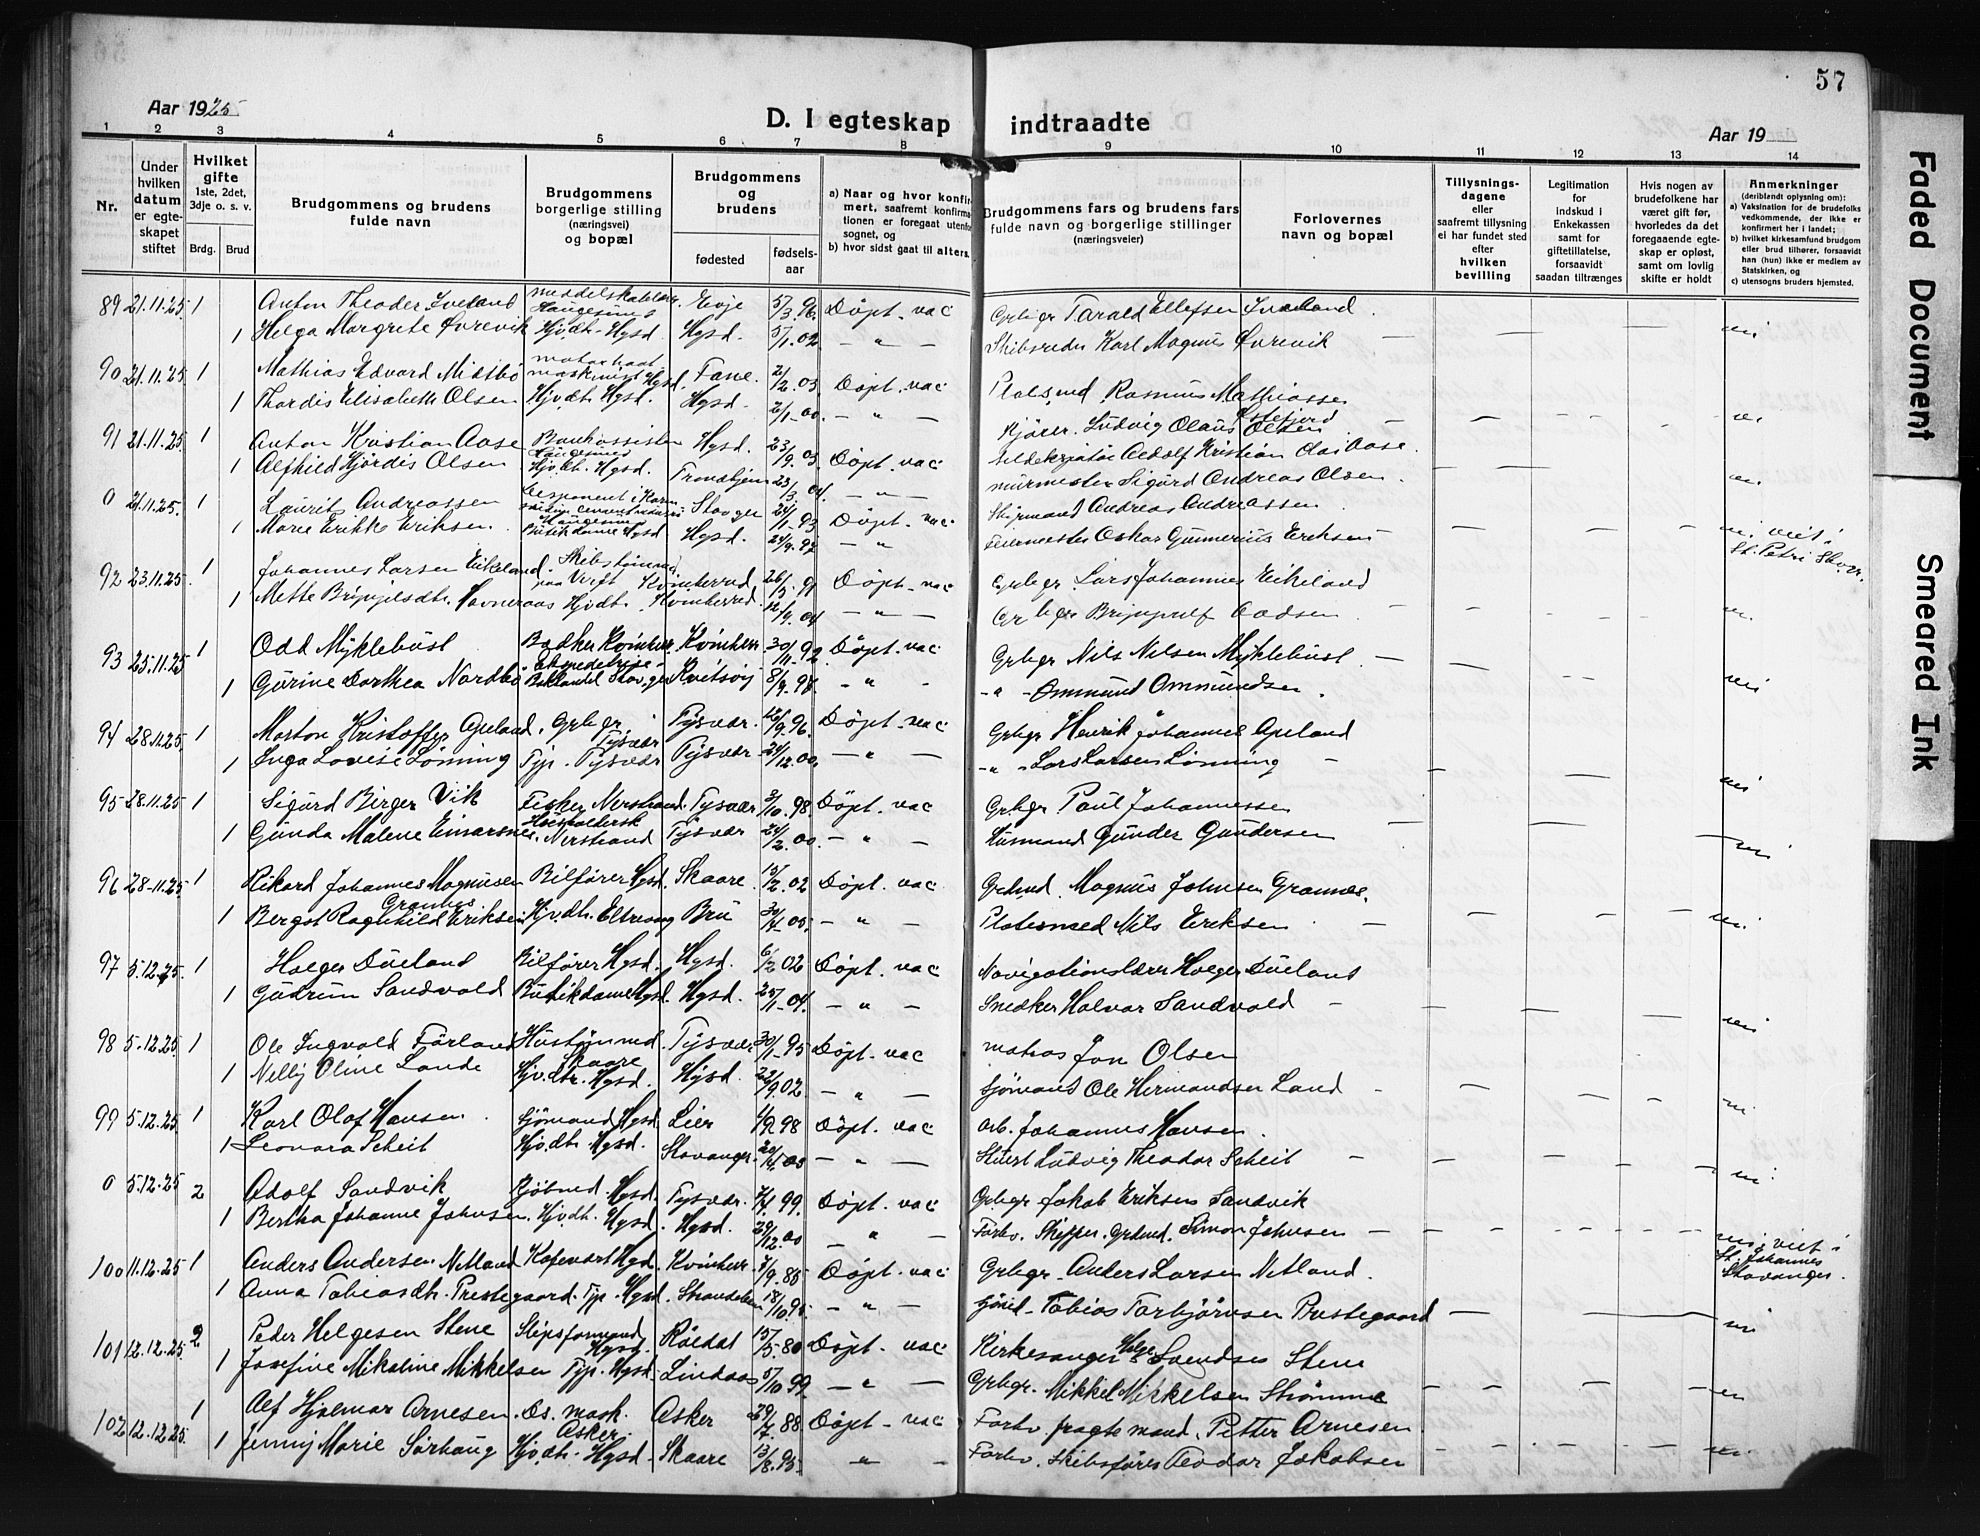 57
Aar 1925
D. I egteskap indtraadte
Aar 19
1 2 3 4 5 6 7 8 9 10 11 12 13 14
Nr.
Under hvilken datum er egte-skapet stiftet
Hvilket gifte 1ste, 2det, 3dje o. s. v.
Brdg. Brud
Brudgommens og brudens fulde navn
Brudgommens borgerlige stilling (næringsvei) og bopæl
Brudgommens og brudens
fødested
fødsels-aar
a) Naar og hvor konfir-mert, saafremt konfirma-tionen er foregaat utenfor sognet, og
b) hvor sidst gaat til alters.
Brudgommens fars og brudens fars fulde navn og borgerlige stillinger (næringsveier)
Forlovernes navn og bopæl
Tillysnings-dagene eller saafremt tillysning ei har fundet sted efter hvilken bevilling
Legitimation for indskud i Enkekassen samt for giftetillatelse, forsaavidt saadan tiltrænges
Hvis nogen av brudefolkene har været gift før, hvorledes da det foregaaende egte-skap er opløst, samt om lovlig skifte er holdt
Anmerkninger
(deriblandt oplysning om):
a) Vaksination for de brudefolks vedkommende, der ikke er konfirmert her i landet;
b) hvilket kirkesamfund brudgom eller brud tilhører, forsaavidt han (hun) ikke er medlem av Statskirken, og
c) utensogns bruders hjemsted.
89 21.11.25 1 Anton Theodor Iveland Haugesund Evje 5/3.96. Døpt. vac Grbgr Tarald Ellefsen Iveland
1 Helga Margrete Øvrevik Hjvdt. Hgsd. Hgsd. 5/1.02 — " — Skibsreder Karl Magnus Øvrevik
90 21.11.25 1 Mathias Edvard Midtbø maskinist Hgsd. Fane. 2/2.03 Døpt. vac Rasmus Mathiassen
1 Thordis Elisabeth Olsen Hjv.dt. Hgsd. Hgsd. 2/1.00. — " — Kjører. Ludvig Olaus Olsen
91 21.11.25 1 Anton Kristian Aase Haugesund Hgsd. 23/9.03 Døpt. vac Adolf Kristian Aase.
1 Alfhild Hjørdis Olsen Hjv.dt. Hgsd. Trondhjem 23/3.04. — " — murmester Sigurd Andreas Olsen
0 21.11.25. 1 Laurits Andreassen Haugesund Stavgr 24/1.93 Døpt. vac Styrmand Andreas Andreassen
1 Marie Erikke Eriksen Butikdame Hgsd Hgsd. 24/9.97 — " Feiermester Oskar Gunnerius Eriksen
St. Petri Stvgr.
92 23.11.25 1 Johannes Larsen Eikeland. Kvinherred 26/3.91 Døpt. vac Grbgr Lars Johannes Eikeland
1 Mette Havneraas Hjvdt. Kvinherred. 12/9.04 — " — Grbgr Brynjulf Aadsen
93 25.11.25 1 Odd Myklebust Bødker Kvinherr Kvinherr 30/11.92 Døpt. vac Grbgr Nils Nilsen Myklebust
1 Gurine Dorthea Nordbø Kvitsøy 8/9.98. — " - — " — Ommund Ommundsen.
94 28.11.25. 1 Morton Kristoffer Apeland. Grbgr Tysvær Tysvær. 12/9.96. Døpt. vac Grbgr Henrik Johannes Apeland
1 Inga Lovise Lønning Tjp. Tysvær Tysvær 24/12.00. — " — — " — Lars Larsen Lønning
95 28.11.25 1 Sigurd Birger Vik Fisker Nerstrand. Tysvær 3/10.98 Døpt. vac Grbgr Paul Johannessen
1 Gunda Malene Einarsnes. Nerstrand Tysvær 24/2.00. — " — Husmand Gunder Gundersen
96 28.11.25 1 Rikard Johannes Magnusen Grannes Bilfører Hgsd. Skaare. 15/2.02 Døpt. vac Grdmd. Magnus Johnsen Grannes.
1 Bergot Ragnhild Eriksen Hjvdt. Bru 30/4.05. — " — Nils Eriksen
97 5.12.25. 1 Holger Dueland Bilfører Hgsd. Hgsd. 6/2 02 Døpt. vac Navigationslærer Holger Dueland
1 Gudrun Sandvold Butikdame Hgsd Hgsd. 25/1.04. — " — Snedker Halvar Sandvold
98 5.12.25 1 Ole Ingvald Førland Skaare Tysvær 30/1.95 Døpt. vac matros Jon Olsen
1 Nelly Oline Lande Hjv.dtr. Hgsd. Hgsd. 22/9.02 — " — Sjømand Ole Hermandsen Land
99 5.12.25 1 Karl Olaf Hansen Sjømand Hgsd Lier 4/9 98 Døpt. vac Arb. Johannes Hansen.
1 Leonora Scheit Hjv.dt. Hgsd. Stavanger. 20/4.00 — " — Ludvig Theodor Scheit
0 5.12.25 2 Adolf Sandvik Hgsd. Tysvær. 4/4.99. Døpt. vac Grbgr Jakob Eriksen Sandvik
1 Bertha Johanne Johnsen. Hjvdt. Hgsd. Hgsd. 29/12.00 — " — Forhv. Skipper. Grdmd. Simon Johnsen
St. Johannes Stavanger.
100 11.12.25 1 Anders Andersen Netland Hgsd. Kvinherr. 7/9.85 Døpt. vac Grbgr. Anders Larsen Netland.
1 Anna Tobiasdtr. Prestegaard. Tjp. Hgsd. 18/10.95. — " — Tobias Torbjørnsen Prestegaard
101 12.12.25. 2 Peder Helgesen Stene Slipsformand Hgsd. Røldal 15/5.80 Døpt. vac Kirkesanger Helge Svendsen Stene
1 Josefine Mikaline Mikkelsen Tjp. Hgsd. Lindaas 5/10 99. — " — Grbgr. Mikkel Mikkelsen Strømme
102 12.12.25. 1 Alf Hjalmar Arnesen. Asker. Asker 29/7.88. Døpt. vac Forhv. fragtemand. Petter Arnesen
1 Jenny Marie Sørhaug Hjv.dt. Hgsd. Skaare 13/8.95. " — Forhv. skibsfører Teodor Jakobsen
Faded Document
Smeared Ink